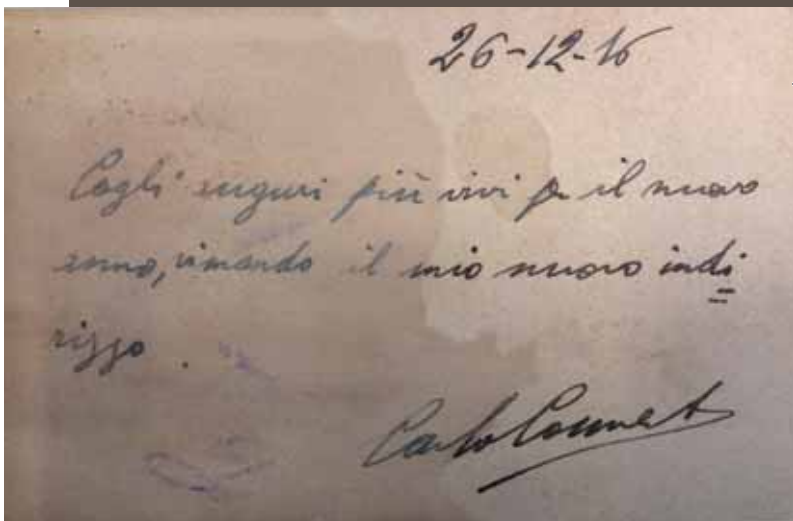 26-12-16
Cogli auguri più vivi pr il nuovo
anno, rimando il mio nuovo indi=
rizzo.
Carlo